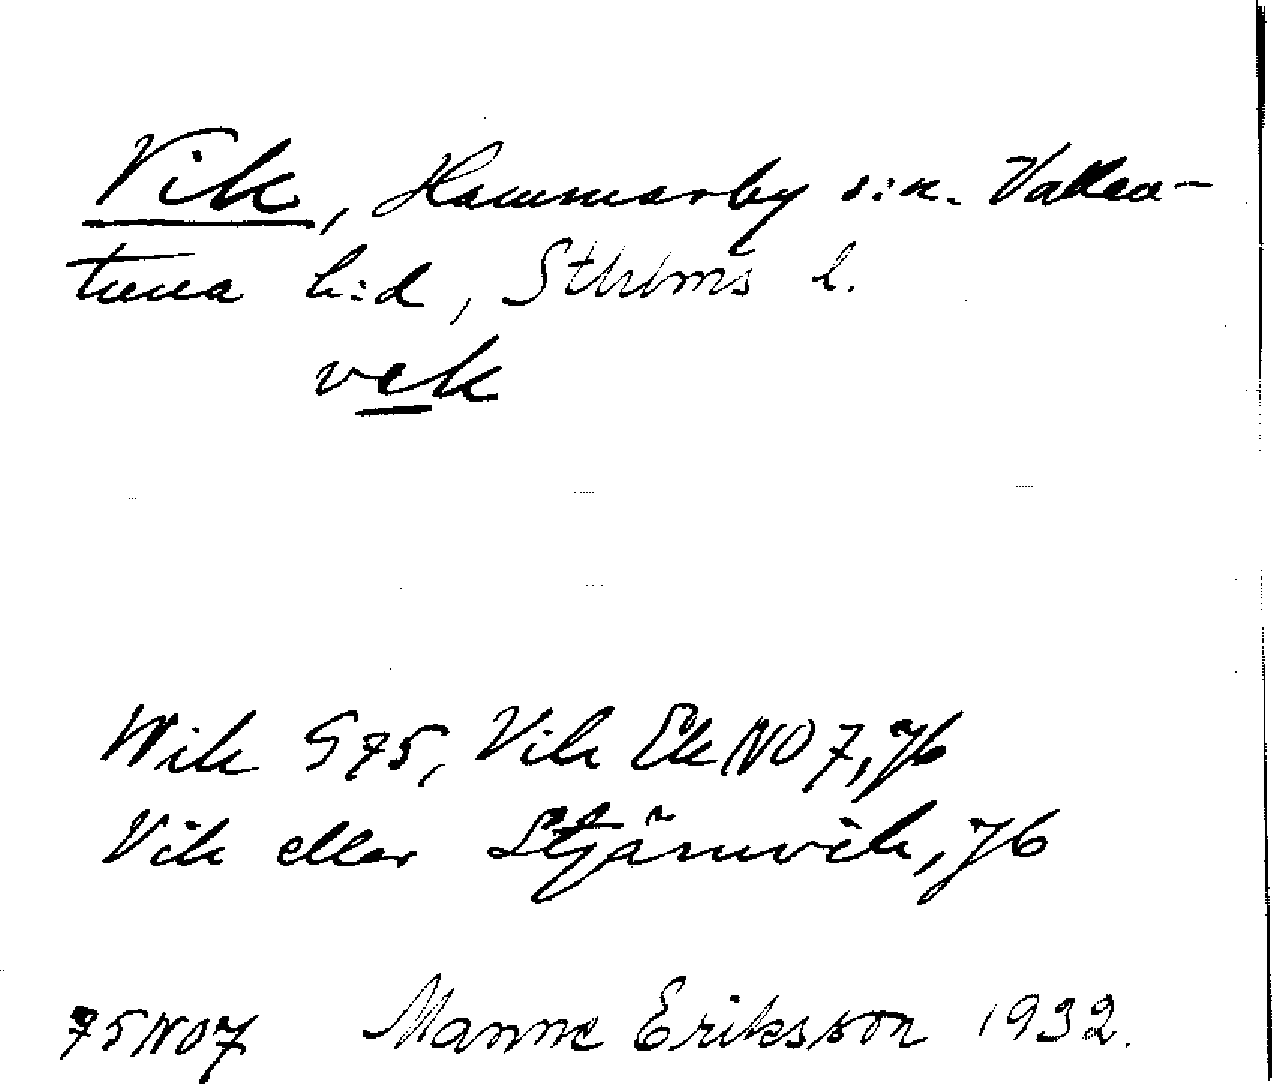 Vik, Hammarby s:n. Vallen-
tuna h:d, Sthlms l.
vek
Wik S75, Vik Ek NO7, Jb
Vik eller Stjärnvik, Jb
75NO7 Manne Eriksson 1932.